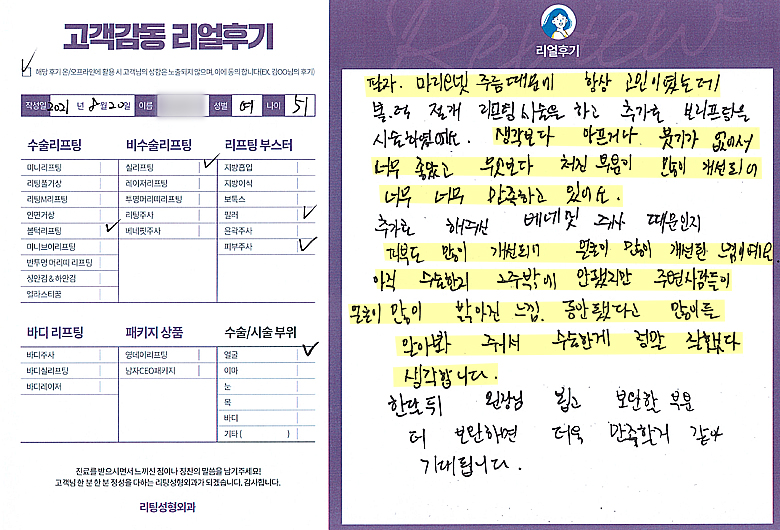 고객감동 리얼후기
해당 후기 온/오프라인에 활용 시 고객님의 성함은 노출되지 않으며, 이에 동의 합니다(EX, 김OO님의 후기)
작성일 2021 년 8월 20일 이름 성별 여 나이 51
수술리프팅
미니리프팅
리팅풀기상
리팅M리프팅
안면거상
볼턱리프팅
미니브이리프팅
반투명 머리띠 리프팅
상안검 & 하안검
얼라스티꿈
비수술리프팅
실리프팅
레이저리프팅
투명머리띠리프팅
리팅주사
베네핏주사
리프팅 부스터
지방흡입
지방이식
보톡스
필러
윤곽주사
피부주사
바디 리프팅
바디주사
바디실리프팅
바디레이저
패키지 상품
영데이리프팅
남자CEO패키지
수술/시술 부위
얼굴
이마
눈
목
바디
기타 ( )
진료를 받으시면서 느끼신 점이나 칭찬의 말씀을 남겨주세요!
고객님 한 분 한 분 정성을 다하는 리팅성형외과가 되겠습니다. 감사합니다.
리팅성형외과
Review
리얼후기
팔자. 마리오넷 주름때문에 항상 고민이였는데
볼.턱 절개 리프팅 시술을 하고 추가로 브리프팅을
시술하였어요. 생각보다 아프거나 붓기가 없어서
너무 좋았고 무엇보다 처진 부분이 많이 개선되어
너무 너무 만족하고 있어요.
추가로 해주신 베네핏 주사 때문인지
피부도 많이 개선되어 얼굴이 많이 개선된 느낌이예요
아직 수술한지 2주밖에 안됐지만 주변사람들이
얼굴이 많이 밝아진 느낌. 동안됐다고 많이들
알아봐 주셔서 수술한게 정말 잘했다
생각합니다.
한달뒤 원장님 뵙고 보완할 부분
더 보완하면 더욱 만족할거 같아
기대됩니다.